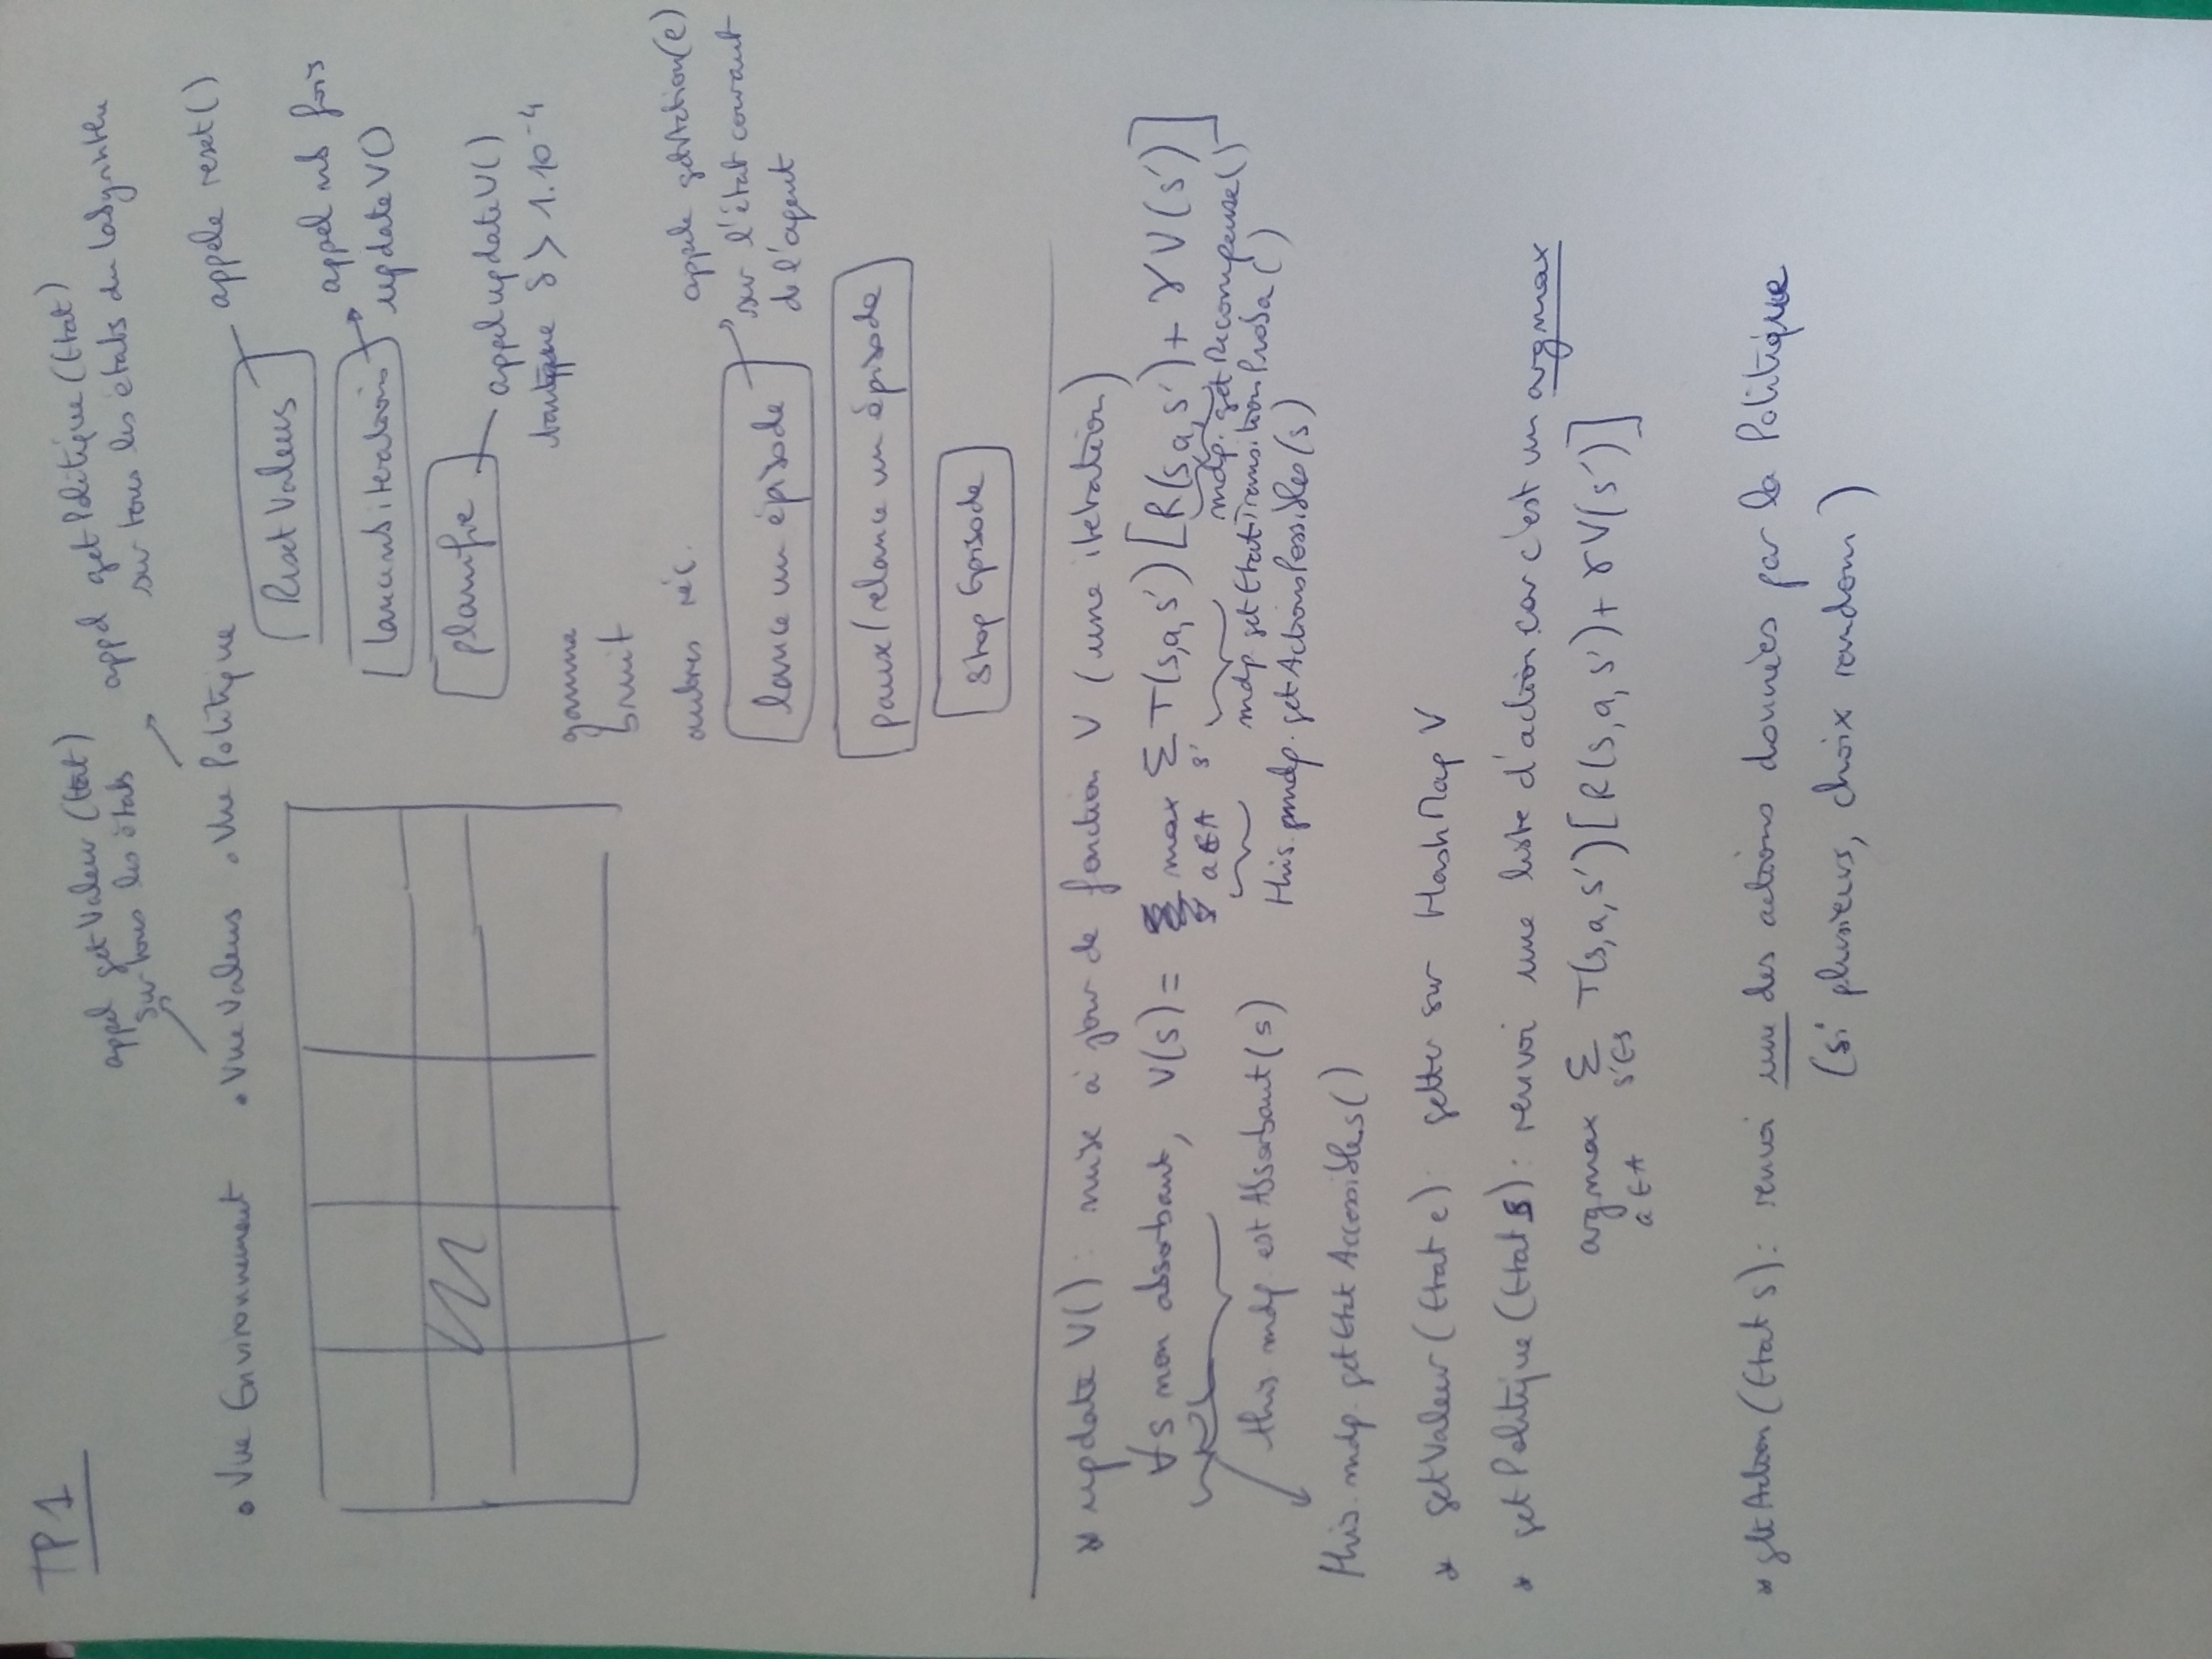 TP1
appel getValeur (Etat)
sur tous les états
appel getPolitique (Etat)
sur tous les états du labyrinthe
• Vue Environnement • Vue Valeurs • Vue Politique
Reset Valeurs
appele reset()
lance nb iterations
appel nb fois
updateV()
planifie
appel updateV()
tantque δ > 1.10⁻⁴
gamma
bruit
autres réc.
lance un épisode
appele getAction(e)
sur l'état courant
de l'agent
pause/relance un épisode
stop Episode
* update V() : mise à jour de fonction V (une iteration)
∀s non absorbant, V(s) = max Σ T(s,a,s') [R(s,a,s') + γ V(s')]
a∈A s'
mdp.getRecompense()
this mdp estAbsorbant(s)
mdp getEtatTransitionProba()
this.mdp.getActionsPossibles(s)
this.mdp.getEtatAccessibles()
* getValeur (Etat e) getter sur HashMap V
* getPolitique (Etat s) : renvoi une liste d'action car c'est un argmax
argmax Σ T(s,a,s') [R(s,a,s') + γV(s')]
a∈A s'∈S
* getAction (Etat s) : renvoi une des actions données par la Politique
(si plusieurs, choix random)